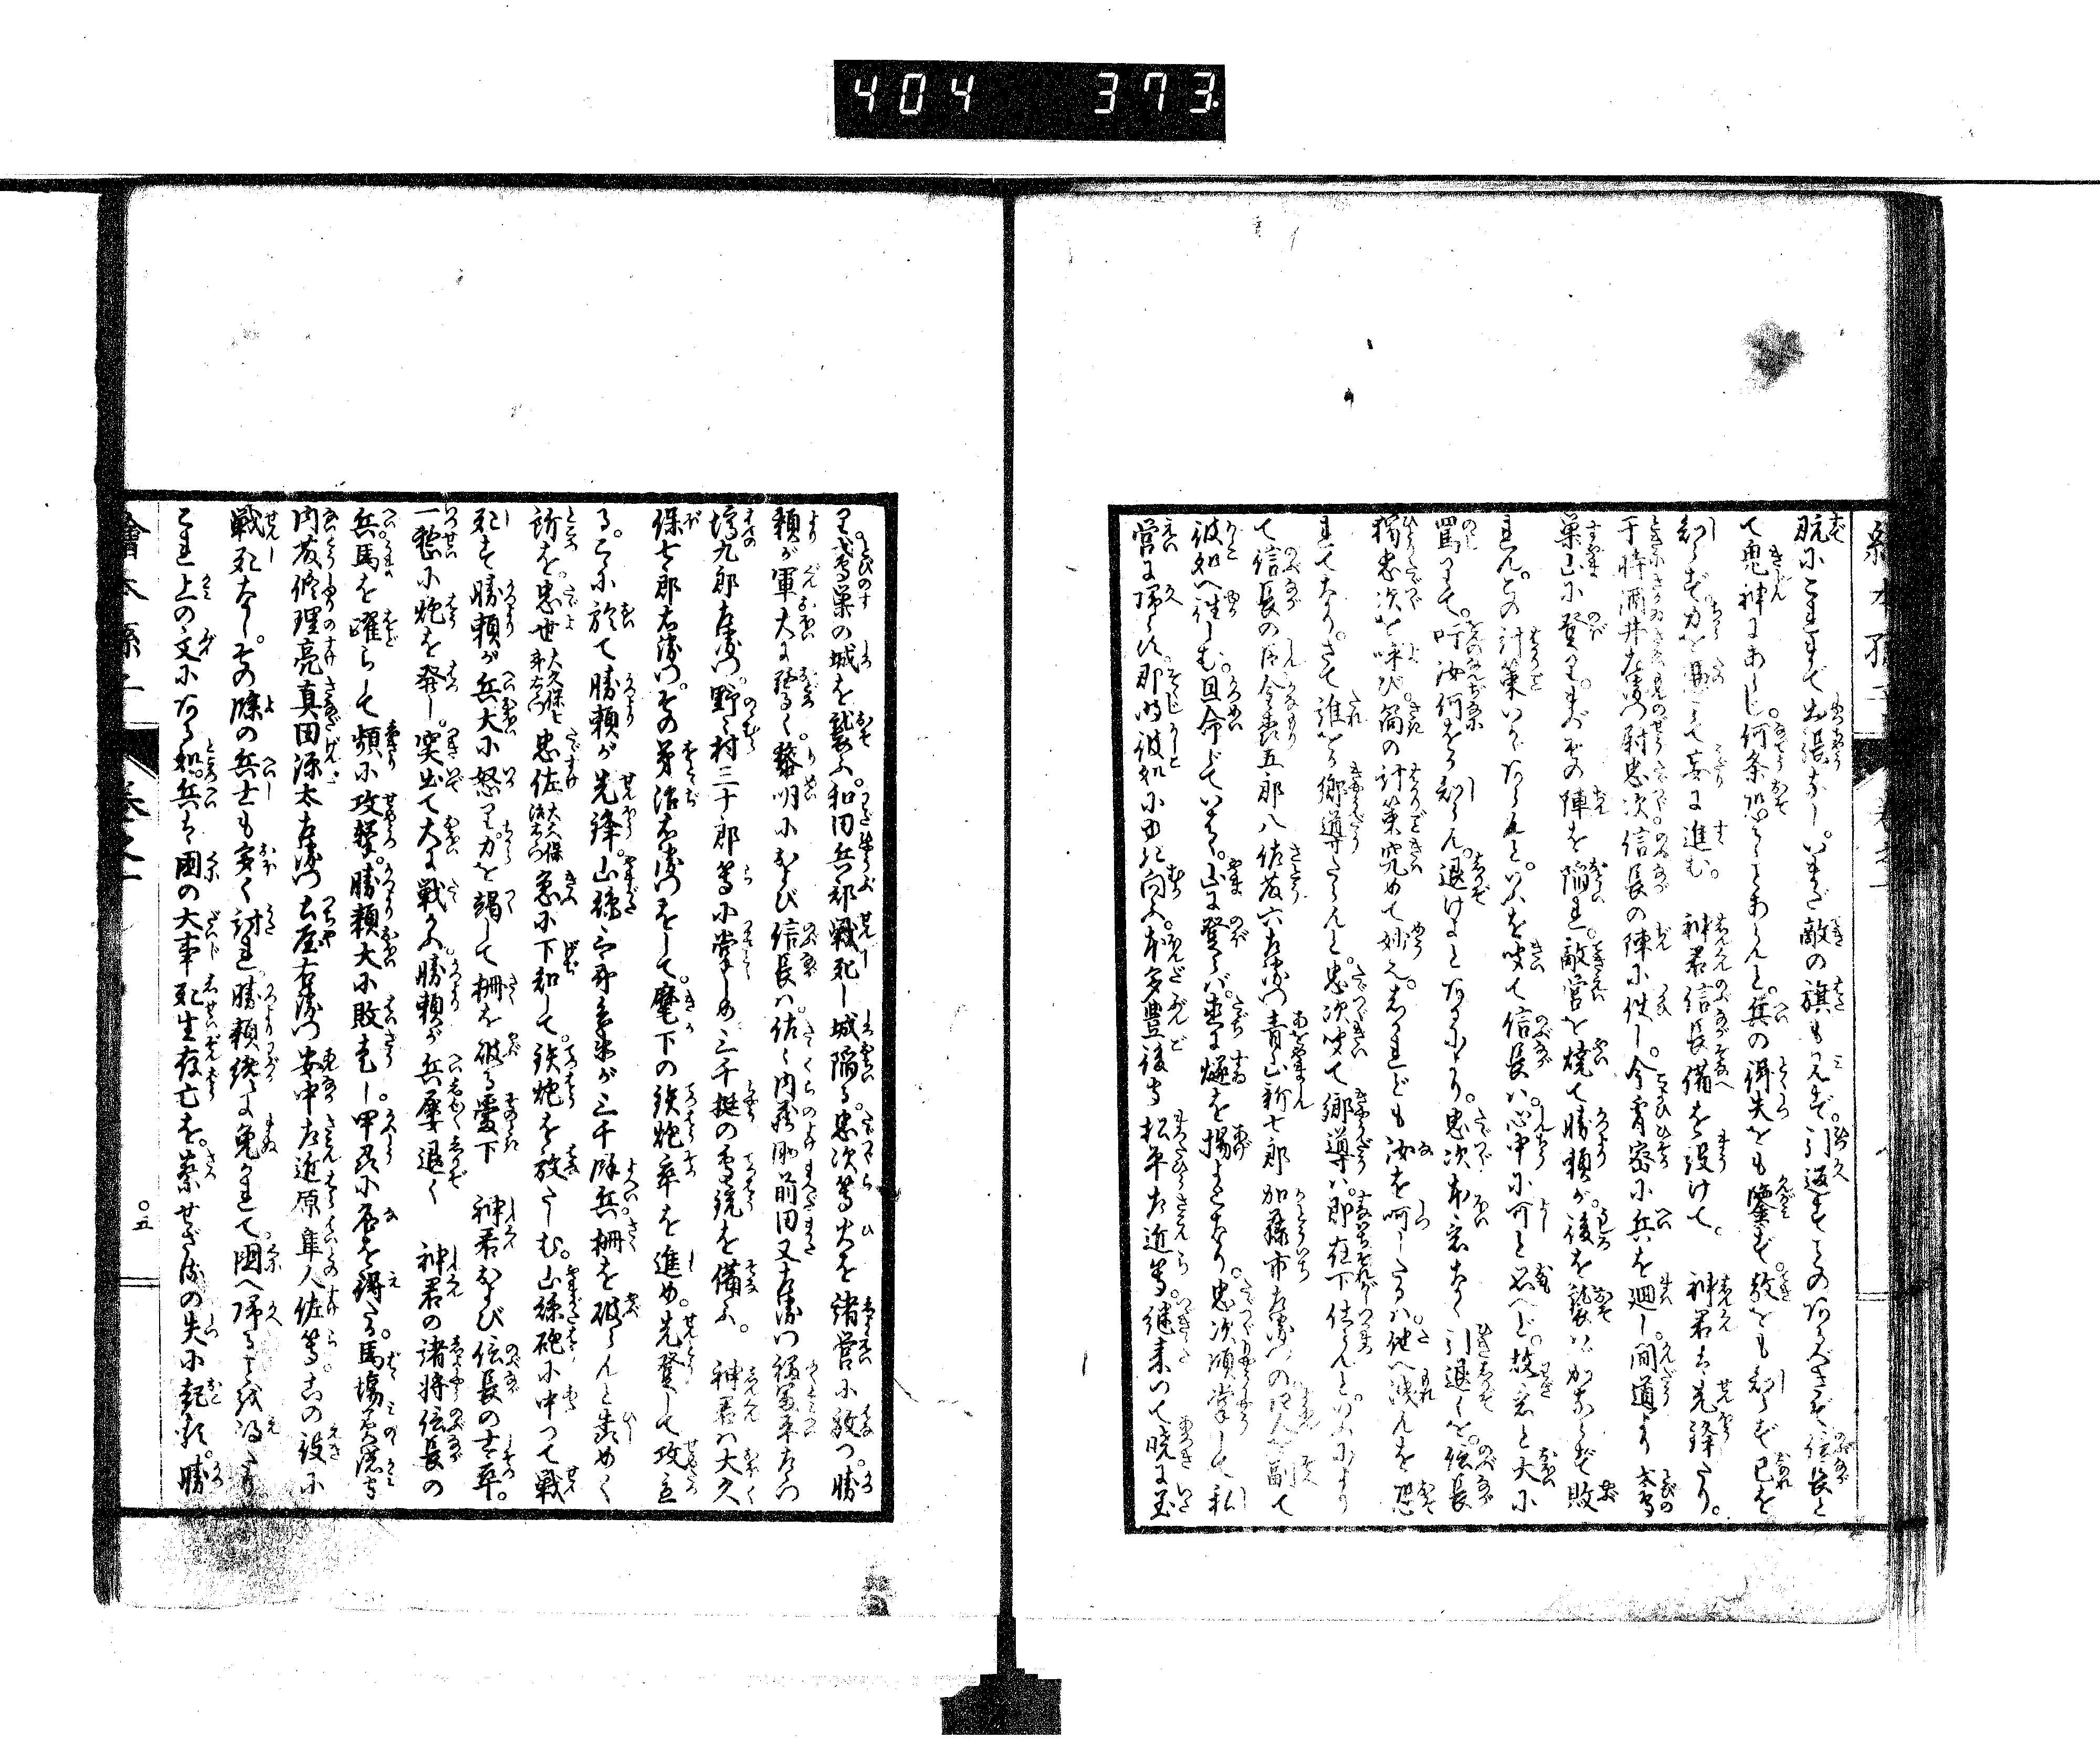 404 373
既にこれまで出張なし。いまだ敵の旗も見ず。引返すことのあるべきぞ信長と
て鬼神にあらじ。何条恐るることあらんと。兵の得失をも鑒ず。敵をも知らず己を
知らず。力を憑て妄に進む。 神君信長備を設けて。 神君は先鋒たり。
于時酒井左衛門尉忠次。信長の陣に伺し。今宵密に兵を廻し。間道より鳶
巣山に登り。まづその陣を陥れ。敵営を焼て勝頼が。後を襲はゞかならず敗
れん。この計策いかゞあらんと。いふを聞て信長は。心中に可と思へど。故意と大に
罵りて。叮汝何をか知らん。退けよとありければ。忠次本意なく引退くを。信長
獨忠次を呼び。箇の計策究めて妙也。しかれども汝を呵したるは。他へ洩んを恐
れてなり。さて誰をか郷導たらんと。忠次聞て郷導は。即在下仕らんと。いふにより
て信長の臣金森五郎八佐藤六左衛門青山新七郎加藤市左衛門の四人を副て
彼処へ往しむ。回命にていはく。山に登らバ。直に燧を揚よとなり。忠次領掌して私
営に帰る。那時彼処に由れ向ふ。本多豊後守松平左近等。継来つて暁に至
り。鳶巣の城を襲ふ。和田兵部戦死し城陥る。忠次等火を諸営に放つ。勝
頼が軍大に騒ぐ。黎明におよび信長は。佐々内蔵助前田又左衛門福富平左衛門
塙九郎左衛門。野々村三十郎等に掌しめ。三千挺の鳥銃を備ふ。 神君は大久
保七郎右衛門。その弟治右衛門をして。麾下の鉄炮卒を進め。先登して攻立
る。こゝに於て勝頼が先鋒。山縣三郎兵衛が三千餘兵。柵を破らんと蒐めく
所を。忠世大久保七郎右衛門忠佐大久保治右衛門急に下知して。鉄炮を放たしむ。山縣砲に中つて戦
死す。勝頼が兵大に怒り。力を竭して柵を破る爰下 神君および信長の士卒。
一整に炮を発し。突出て大に戦かふ。勝頼が兵屡退く 神君の諸将信長の
兵馬を躍らして頻に攻撃。勝頼大に敗走し。甲兵に否を得たる。馬場美濃守
内藤修理亮真田源太左衛門土屋右衛門安中左近原隼人佐等。この役に
戦死なし。その餘の兵士も多く討れ。勝頼纔に免かれて。國へ帰ることを得たり。
これ上の文にいへる如。兵は國の大事死生存亡を。察せざるの失に起れり。勝
繪本孫子 巻之一
〇五